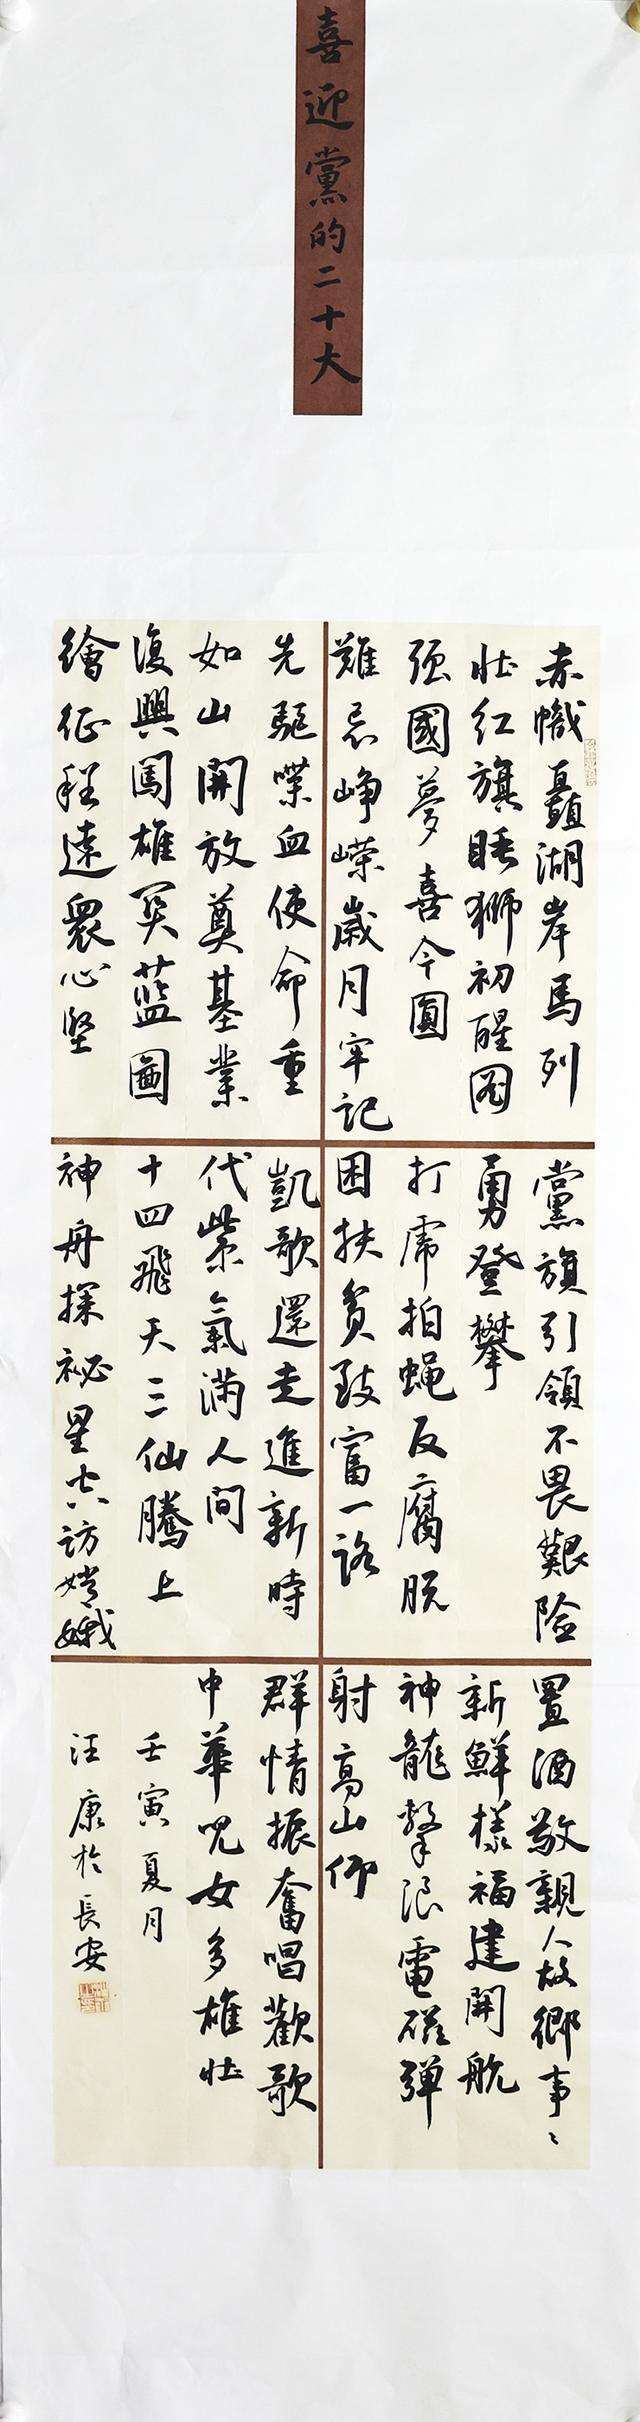 喜迎黨的二十大
赤幟矗湖岸馬列
壯红旗睡狮初醒圆
强國夢喜今圓
難忘峥嵘歲月牢記
先驅喋血使命重
如山開放奠基業
復興闖雄関蓝圖
繪征程遠衆心堅
黨旗引領不畏艱險
勇登攀
打虎拍蝇反腐脱
困扶貧致富一路
凱歌還走進新時
代紫氣满人间
十四飛天三仙騰上
神舟探祕星穴訪嫦娥
置酒敬親人故鄉事〻
新鮮樣福建開航
神龍擊浪電磁弹
射高山仰
群情振奮唱歡歌
中華兒女多雄壯
壬寅夏月
汪康於長安